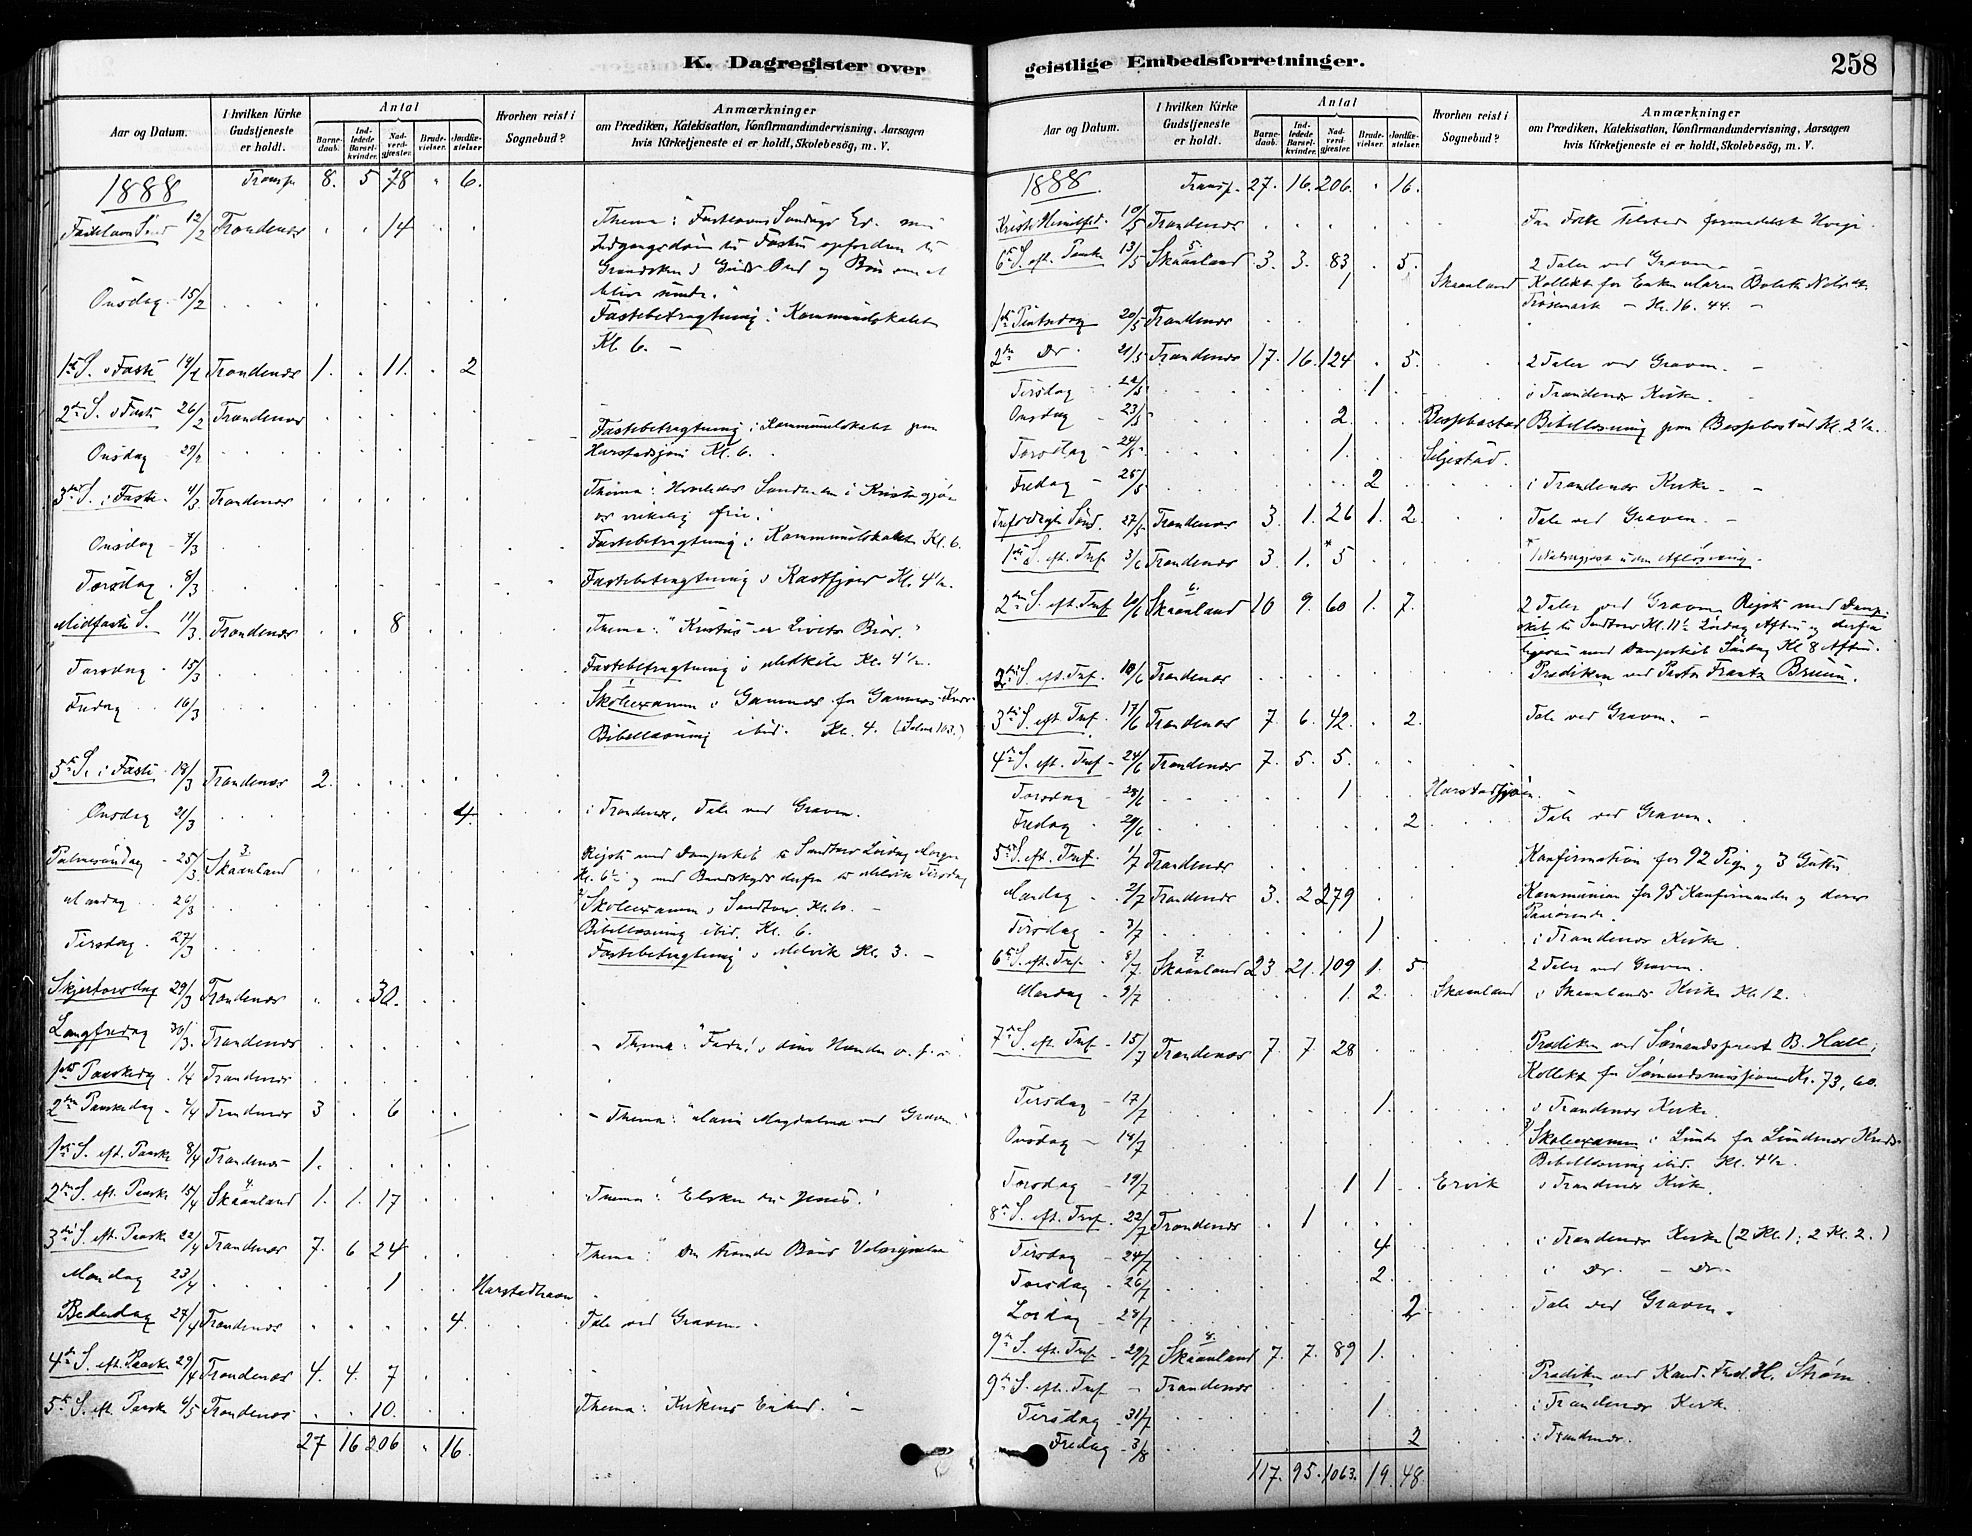 K. Dagregister over
Aar og Datum.
I hvilken Kirke Gudstjeneste er holdt.
Antal
Barne-daab.
Ind-ledede Barsel-kvinder.
Nad-verd-gjæster.
Brude-vielser.
Jordfæ-stelser
Hvorhen reist i Sognebud?
Anmærkninger
om Prædiken, Katekisation, Konfirmandundervisning, Aarsagen
hvis Kirketjeneste ei er holdt, Skolebesög, m. V.
1888 Transp. 8. 5 78 " 6.
Fastelavns Sønd 12/2 Trondenæs . . 14 . . Thema: "Fastelavns Søndags Ev.
Onsdag 15/2
Fastebetragtning i Kommunelokalet
Kl. 6. –
1ste S. i Faste 19/2 Trondenæs 1. . 11. . 2
2den S. i Faste 26/2 Trondenæs
Onsdag 29/2 Fastebetragtning i Kommunelokalet paa
Harstadsjøen Kl. 6.
3die S. i Faste 4/3 Trondenæs
Onsdag 7/3 Fastebetragtning i Kommunelokalet Kl. 6.
Torsdag 8/3 Fastebetragtning i Kastfjord Kl. 4½.
Midfaste S. 11/3 Trondenæs . . 8 . . Thema: "Kristus er Livets Brød."
Torsdag 15/3 Fastebetragtning i Melkila Kl. 4½.
Fredag 16/3 Skoleexamen i Gamnæs for Gamnæs-Kreds
Bibellæsning ibid. Kl. 4. (Salme 103.)
5te S. i Faste 18/3 Trondenæs 2.
Onsdag 21/3 4. i Trondenæs, Tale ved Graven.
Palmesøndag 25/3 3. Skaanland Rejste med Dampskib til Sandtorv Lørdag Morgen
Kl. 6½ og med Baadskyds derfra til Melvik Tirsdag
Mandag 26/3 Skoleexamen i Sandtorv Kl. 10. –
Bibellæsning ibid. Kl. 6.
Tirsdag 27/3 Fastebetragtning i Melvik Kl. 3. –
Skjærtorsdag 29/3 Trondenæs " . 30.
Langfredag 30/3 Trondenæs – Thema: "Fader! i dine Hænder o.s.v.
1ste Paaskedag 1/4 Trondenæs
2den Paaskedag 2/4 Trondenæs 3 . 6 – Thema: "Maria Magdalena ved Graven."
1ste S. eft. Paaske 8/4 Trondenæs 1.
2den S. eft. Paaske 15/4 4. Skaanland 1. 1. 17 Thema: "Elsker du Jesus."
3die S. eft. Paaske 22/4 Trondenæs 7. 6 24
Mandag 23/4 1 Harstadhavn
Bededag 27/4 Trondenæs 4. Tale ved Graven.
4de S. eft. Paaske 29/4 Trondenæs 4. 4. 7
5te S. eft. Paaske 6/5 Trondenæs . . 10. Thema: "Kirkens Enhed." –
27 16 206 " 16.
geistlige Embedsforretninger. 258
Aar og Datum.
I hvilken Kirke Gudstjeneste er holdt.
Antal
Barne-daab.
Ind-ledede Barsel-kvinder.
Nad-verd-gjæster.
Brude-vielser.
Jordfæ-stelser
Hvorhen reist i Sognebud?
Anmærkninger
om Prædiken, Katekisation, Konfirmandundervisning, Aarsagen
hvis Kirketjeneste ei er holdt, Skolebesög, m. V.
1888. Transp. 27. 16. 206. . 16.
Kristi Himmelfd. 10/5 Trondenæs Faa Folk tilstede formedelst Uvejr.
6te S. eft. Paaske 13/5 5. Skaanland 3. 3. 83 . 5. 2 Taler ved Graven.
1 Skaanland Kollekt for Enken Maren Bolette Nilsdtr.
– Kr. 16. 44. –
1ste Pintsedag 20/5 Trondenæs
2den Do. 21/5 Trondenæs 17. 16. 124 . 5. 2 Taler ved Graven. –
Tirsdag 22/5 1 i Trondenæs Kirke.
Onsdag 23/5 2. Bessebostad Bibellæsning paa Bessebostad Kl. 2½.
Torsdag 24/5 1. Seljestad.
Fredag 25/5 2 i Trondenæs Kirke. –
Trefoldigh. Sønd. 27/5 Trondenæs 3. 1. 26 1. 2. Tale ved Graven. –
1ste S. eft. Tref. 3/6 Trondenæs 3. 1. *5 *1 Nadvergjæst uden Afløsning.
2den S. eft. Tref. 10/6 6. Skaanland 10 9. 60 1. 7. 2 Taler ved Graven. Rejste med Damp-
skib til Sandtorv Kl. 11½ Lørdag Aften og derfra
ligesaa med Dampskib Søndag Kl 8 Aften.
2den S. eft. Tref. 10/6 Trondenæs Prædiken ved Pastor Frantz Bruun.
3die S. eft Tref. 17/6 Trondenæs 7. 6. 42. . 2. Tale ved Graven. –
4de S. eft. Tref. 24/6 Trondenæs 7. 5. 5.
Torsdag 28/6 1 Harstadsjøen.
Fredag 29/6 2 Tale ved Graven.
5te S. eft. Tref. 1/7 Trondenæs Konfirmation for 92 Piger og 3 Gutter
Mandag 2/7 Trondenæs 3. 2 279 Kommunion for 95 Konfirmander og deres
Paarørende.
Tirsdag 3/7 1 i Trondenæs Kirke.
6te S. eft. Tref. 8/7 7. Skaanland 23. 21. 109 1. 5 2 Taler ved Graven.
Mandag 9/7 1. 2. Skaanland i Skaanlands Kirke Kl. 12.
7de S. eft. Tref. 15/7 Trondenæs 7. 7. 28 Prædiken ved Sømandspræst B. Hall;
Kollekt for Sømandsmissionen Kr. 73, 60.
Tirsdag 17/7 1. i Trondenæs Kirke.
Onsdag 18/7 Skoleexamen i Lunde for Lundenæs Kreds
Bibellæsning ibid. Kl. 4½.
Torsdag 19/7 1 1. Ervik i Trondenæs Kirke.
8de S. eft. Tref. 22/7 Trondenæs . 1
Tirsdag 24/7 4 i Trondenæs Kirke (2 Kl. 1; 2 Kl. 2.)
Torsdag 26/7 2. i Do. – Do.
Lørdag 28/7 2 Tale ved Graven.
9de S. eft. Tref. 29/7 8. Skaanland 7. 7. 89 1.
9de S. eft. Tref – Trondenæs Prædiken ved Kand. Fred. H. Strøm
Tirsdag 31/7 1. i Trondenæs Kirke
Fredag 3/8 2 i Trondenæs.
117. 95. 1063. 19. 48.